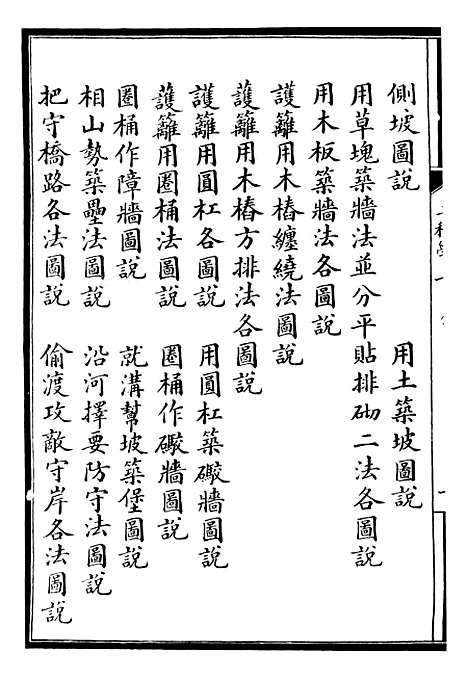 側坡圖說
用土築坡圖說
用草塊築牆法並分平貼排砌二法各圖說
用木板築牆法各圖說
護籬用木樁纏繞法圖說
護籬用木樁方排法各圖說
護籬用圓杠各圖說
用圓杠築礮牆圖說
護籬用圈桶法圖說
圈桶作礮牆圖說
圈桶作障牆圖說
就溝幫坡築堡圖說
相山勢築壘法圖說
沿河擇要防守法圖說
把守橋路各法圖說
偷渡攻敵守岸各法圖說